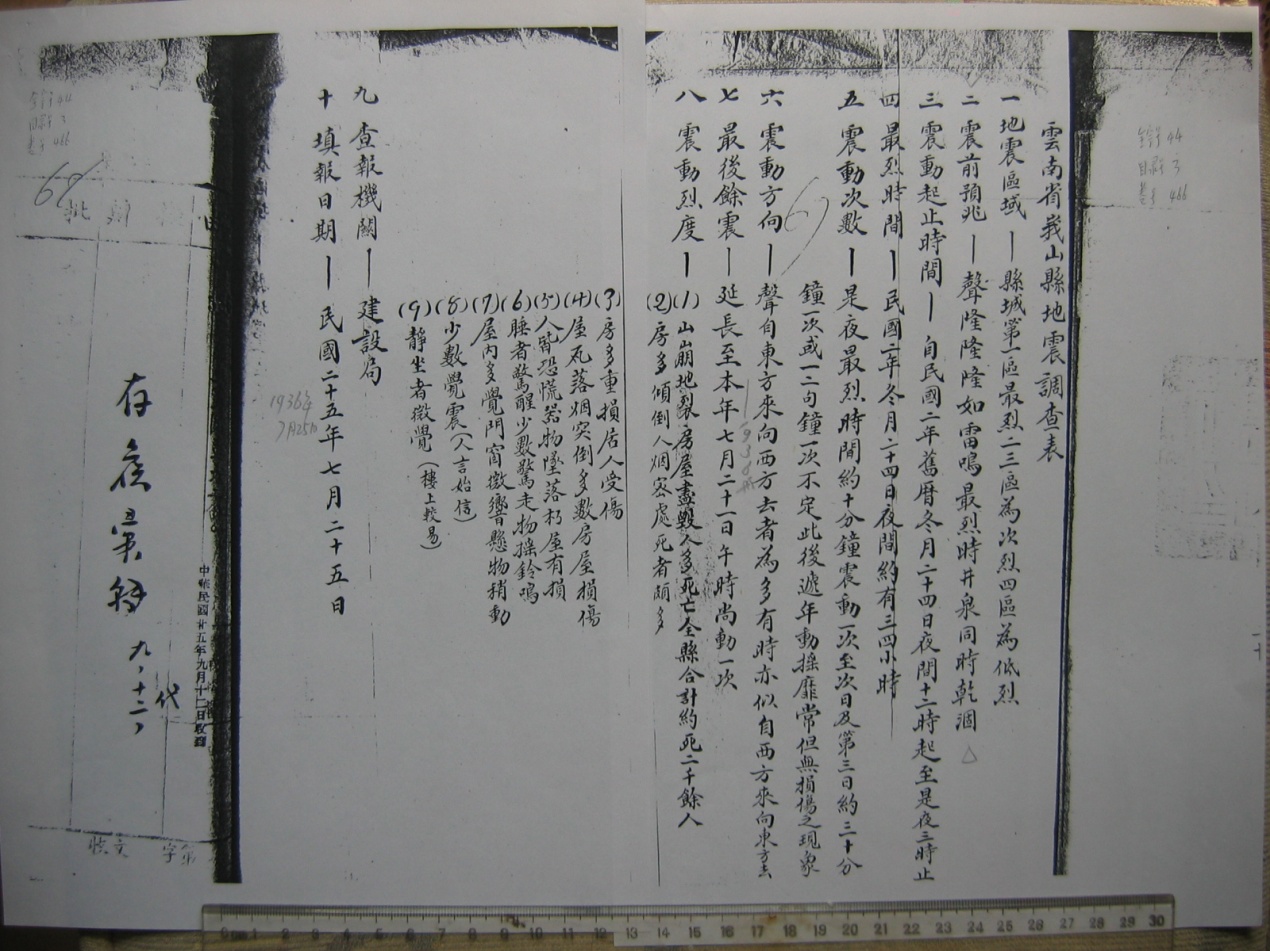 雲南省峩山縣地震調查表
一 地震區域 — 縣城第一區最烈二三區為次烈四區為低烈
二 震前預兆 — 聲隆隆隆如雷鳴最烈時井泉同時乾涸
三 震動起止時間 — 自民國二年舊曆冬月二十四日夜間十二時起至是夜三時止
四 最烈時間 — 民國二年冬月二十四日夜間約有三四小時
五 震動次數 — 是夜最烈時間約十分鐘震動一次至次日及第三日約三十分
鐘一次或一二句鐘一次不定此後遞年動搖靡常但無損傷之現象
六 震動方向 — 聲自東方來向西方去者為多有時亦似自西方來向東方去
七 最後餘震 — 延長至本年七月二十一日午時尚動一次
八 震動烈度 — (1) 山崩地裂房屋盡毀人多死亡全縣合計約死二千餘人
(2) 房多傾倒人烟密處死者頗多
(3) 房多重損居人受傷
(4) 屋瓦落烟突倒多數房屋損傷
(5) 人皆恐慌器物墜落朽屋有損
(6) 睡者驚醒少數驚走物搖鈴鳴
(7) 屋內多覺門窗微響懸物稍動
(8) 少數覺震(人言始信)
(9) 靜坐者微覺(樓上較易)
九 查報機關 — 建設局
十 填報日期 — 民國二十五年七月二十五日
1936年
7月25日
中華民國廿五年九月十二日收到
存候彙辦
九、十二、
代
67
第 字
收文
44
3
466
44
3
466
0 1 2 3 4 5 6 7 8 9 10 11 12 13 14 15 16 17 18 19 20 21 22 23 24 25 26 27 28 29 30